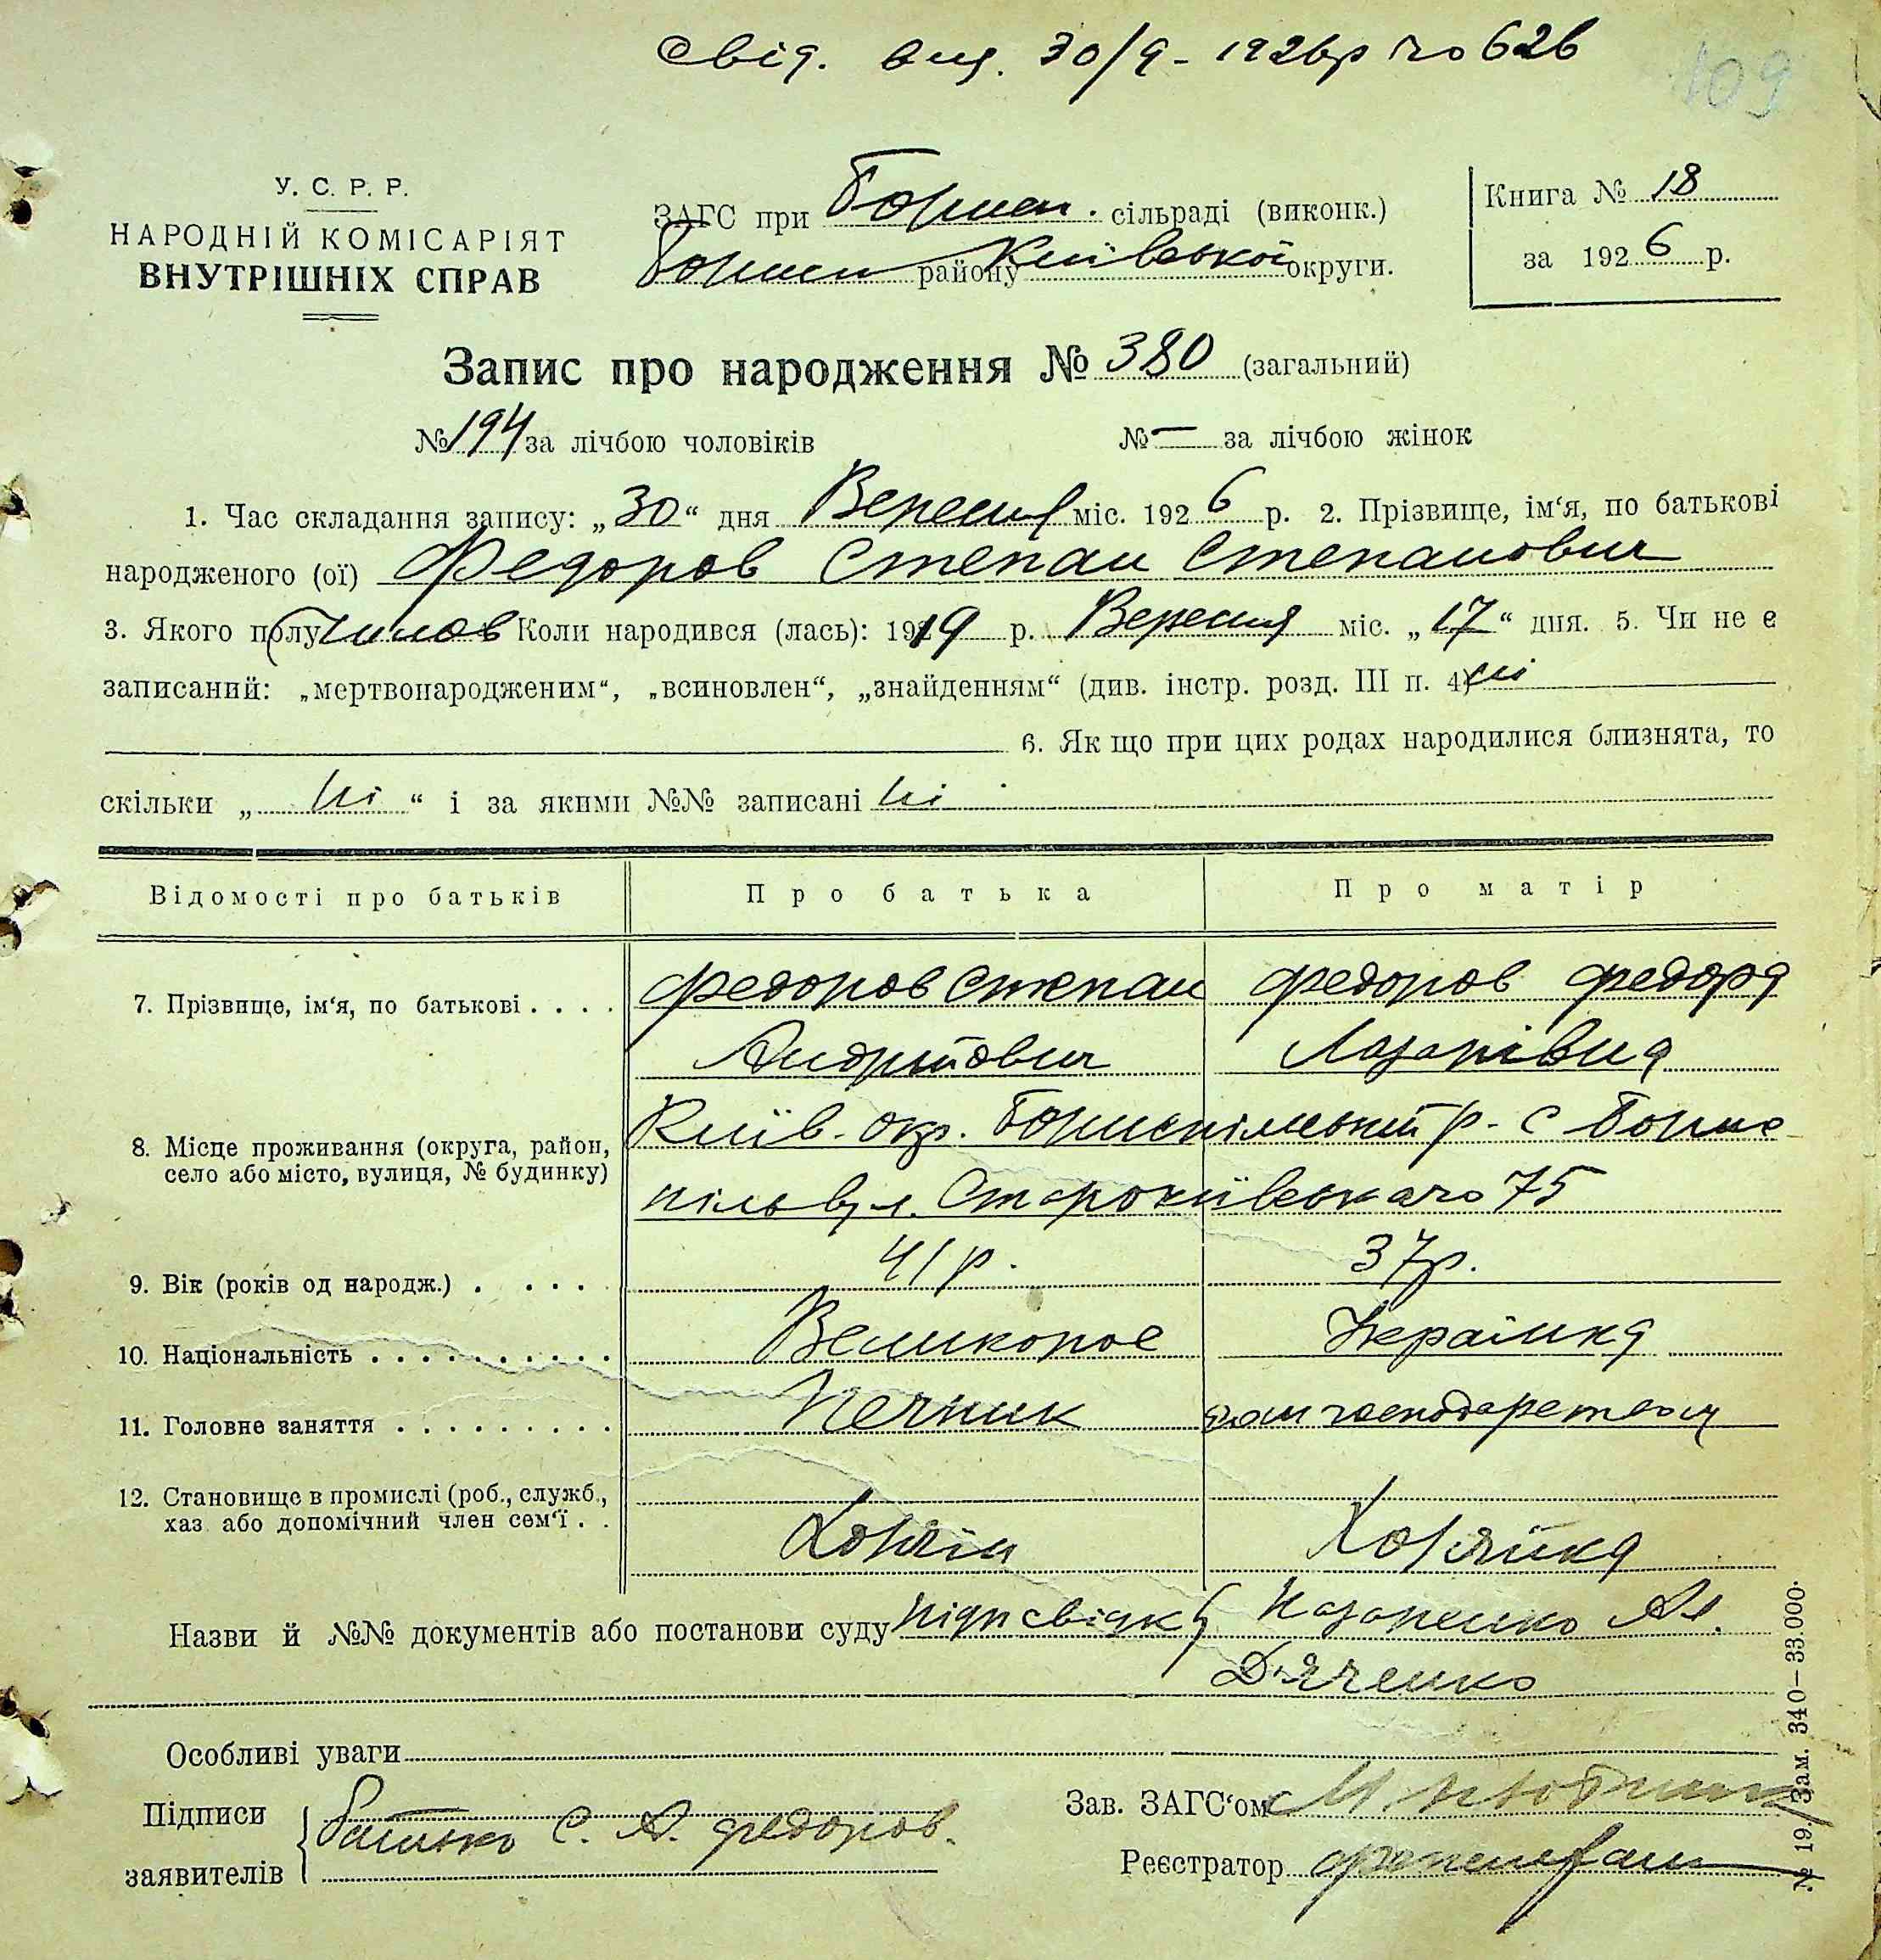 Свід. вид. 30/9 - 1926р № 626
109
У. С. Р. Р.
НАРОДНІЙ КОМІСАРІЯТ
ВНУТРІШНІХ СПРАВ
ЗАГС при Борисп. сільраді (виконк.)
Борисп району Київської округи.
Книга № 18
за 1926 р.
Запис про народження № 380 (загальний)
№ 194 за лічбою чоловіків
№ — за лічбою жінок
1. Час складання запису: „30“ дня Вересня міс. 1926 р. 2. Прізвище, ім‘я, по батькові
народженого (ої) Федоров Степан Степанович
3. Якого полу Чилов Коли народився (лась): 1919 р. Вересня міс. „17“ дня. 5. Чи не є
записаний: „мертвонародженим“, „всиновлен“, „знайденням“ (див. інстр. розд. III п. 4) ні
6. Як що при цих родах народилися близнята, то
скільки „ ні “ і за якими №№ записані ні
Відомості про батьків
Про батька
Про матір
7. Прізвище, ім‘я, по батькові . . . .
Федоров Степан
Андрійович
Федоров Федора
Лазарівна
8. Місце проживання (округа, район,
село або місто, вулиця, № будинку)
Київ. окр. Бориспільський р. с Борис
піль вул. Старокиївська № 75
9. Вік (років од народж.) . . . .
41 р.
37 р.
10. Національність . . . . . . . . . .
Великорос
Українка
11. Головне заняття . . . . . . . . .
Печник
дом господарством
12. Становище в промислі (роб., служб.,
хаз. або допомічний член сем‘ї . .
Хозяін
Хозяйка
Назви й №№ документів або постанови суду підп свідк Назаренко Ал.
Дяченко
Особливі уваги
Підписи
заявителів
батько С. А. Федоров.
Зав. ЗАГС‘ом
Реєстратор
№ 19. Зам. 340—33.000.